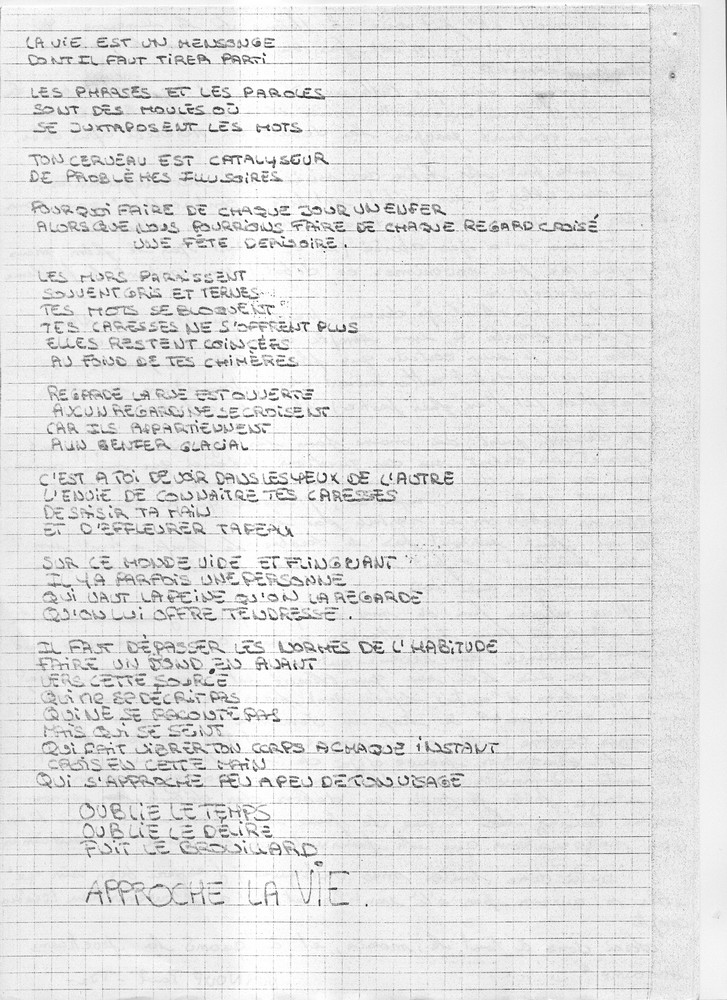 LA ViE EST UN MENSONGE
DONT IL FAUT TiRER PARTi
LES PHRASES ET LES PAROLES
SONT DES MOULES OÙ
SE JUXTAPOSENT LES MOTS
TON CERVEAU EST CATALYSEUR
DE PROBLÈMES ILLUSOIRES
POURQUOI FAIRE DE CHAQUE JOUR UN ENFER
ALORS QUE NOUS POURRIONS FAIRE DE CHAQUE REGARD CROISÉ
UNE FÊTE DERISOIRE.
LES MURS PARAISSENT
SOUVENT GRIS ET TERNES
TES MOTS SE BLOQUENT
TES CARESSES NE S'OFFRENT PLUS
ELLES RESTENT COINCÉES
AU FOND DE TES CHIMÈRES
REGARDE LA RUE EST OUVERTE
AUCUN REGARD NE SE CROISENT
CAR ILS APPARTIENNENT
A UN ENFER GLACIAL
C'EST A TOI DE VOIR DANS LES YEUX DE L'AUTRE
L'ENVIE DE CONNAÎTRE TES CARESSES
DE SAISIR TA MAIN
ET D'EFFLEURER TA PEAU
SUR CE MONDE VIDE ET FLINGUANT
IL Y A PARFOIS UNE PERSONNE
QUI VAUT LA PEINE QU'ON LA REGARDE
QU'ON LUI OFFRE TENDRESSE.
IL FAUT DÉPASSER LES NORMES DE L'HABITUDE
FAIRE UN BOND EN AVANT
VERS CETTE SOURCE
QUi NE SE DÉCRIT PAS
QUI NE SE RACONTE PAS
MAIS QUI SE SENT
QUi FAIT VIBRER TON CORPS A CHAQUE iNSTANT
CROIS EN CETTE MAIN
QUI S'APPROCHE PEU A PEU DE TON VISAGE
OUBLIE LE TEMPS
OUBLIE LE DÉLIRE
FUIT LE BROUILLARD
APPROCHE LA ViE.